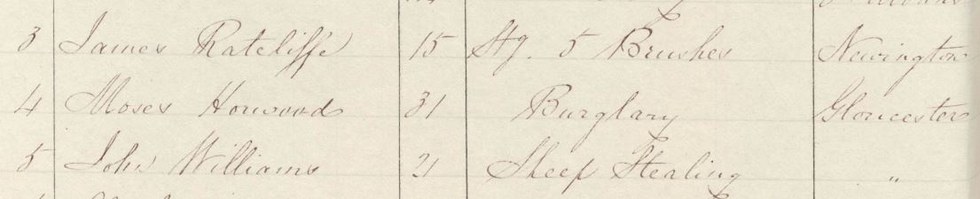 3 James Ratcliffe 15 Stg. 5 Brushes Newington
4 Moses Horwood 31 Burglary Gloucester
5 John Williams 21 Sheep Stealing "